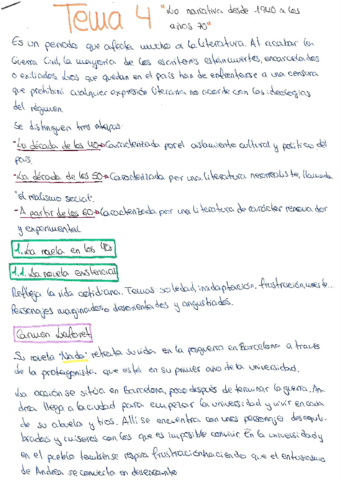 Tema 4 "La narrativa desde 1940 a los
años 70"
Es un periodo que afecta mucho a la literatura. Al acabar la
Guerra Civil, la mayoría de los escritores están muertos, encarcelados
o exiliados. Los que quedan en el país han de enfrentarse a una censura
que prohibirá cualquier expresión literaria no acorde con las ideologías
del régimen.
Se distinguen tres etapas:
-La década de los 40→Caracterizada por el aislamiento cultural y político del
país.
-La década de los 50→Caracterizada por una literatura neorrealista, llamada
"el realismo social".
-A partir de los 60→Caracterizada por una literatura de carácter renovador
y experimental
1. La novela en los 40
1.1. La novela existencial
Refleja la vida cotidiana. Temas soledad, inadaptación, frustración, muerte...
Personajes marginados, desorientados y angustiados.
Carmen Laforet
Su novela "Nada" retrata su vida en la posguerra en Barcelona a través
de la protagonista que está en su primer año de la universidad.
La acción se sitúa en Barcelona, poco después de terminar la guerra. An-
drea llega a la ciudad para empezar la universidad y vivir en casa
de su abuela y tíos. Allí se encuentra con unos personajes desequili-
brados y con los que es imposible convivir. En la universidad y
en el también se respira frustración haciendo que el entusiasmo
de Andrea se convierta en desencanto